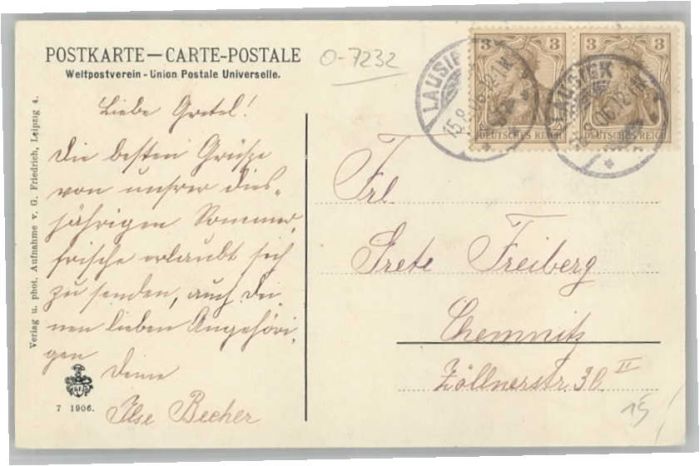 POSTKARTE—CARTE-POSTALE
Weltpostverein - Union Postale Universelle.
0-7232
3 3
3 3
DEUTSCHES REICH
DEUTSCHES REICH
LAUSIGK
15.8.
Liebe Gretel!
Die besten Grüsse
von unsrer dies-
jährigen Sommer,
frische erlaubt sich
zu senden, auch Dei-
nen lieben Angehöri-
gen Deine
Ilse Becher
Frl
Grete Freiberg
Chemnitz
Zöllnerstr. 30 II
15
Verlag u. phot. Aufnahme v. G. Friedrich, Leipzig 4.
7 1906.